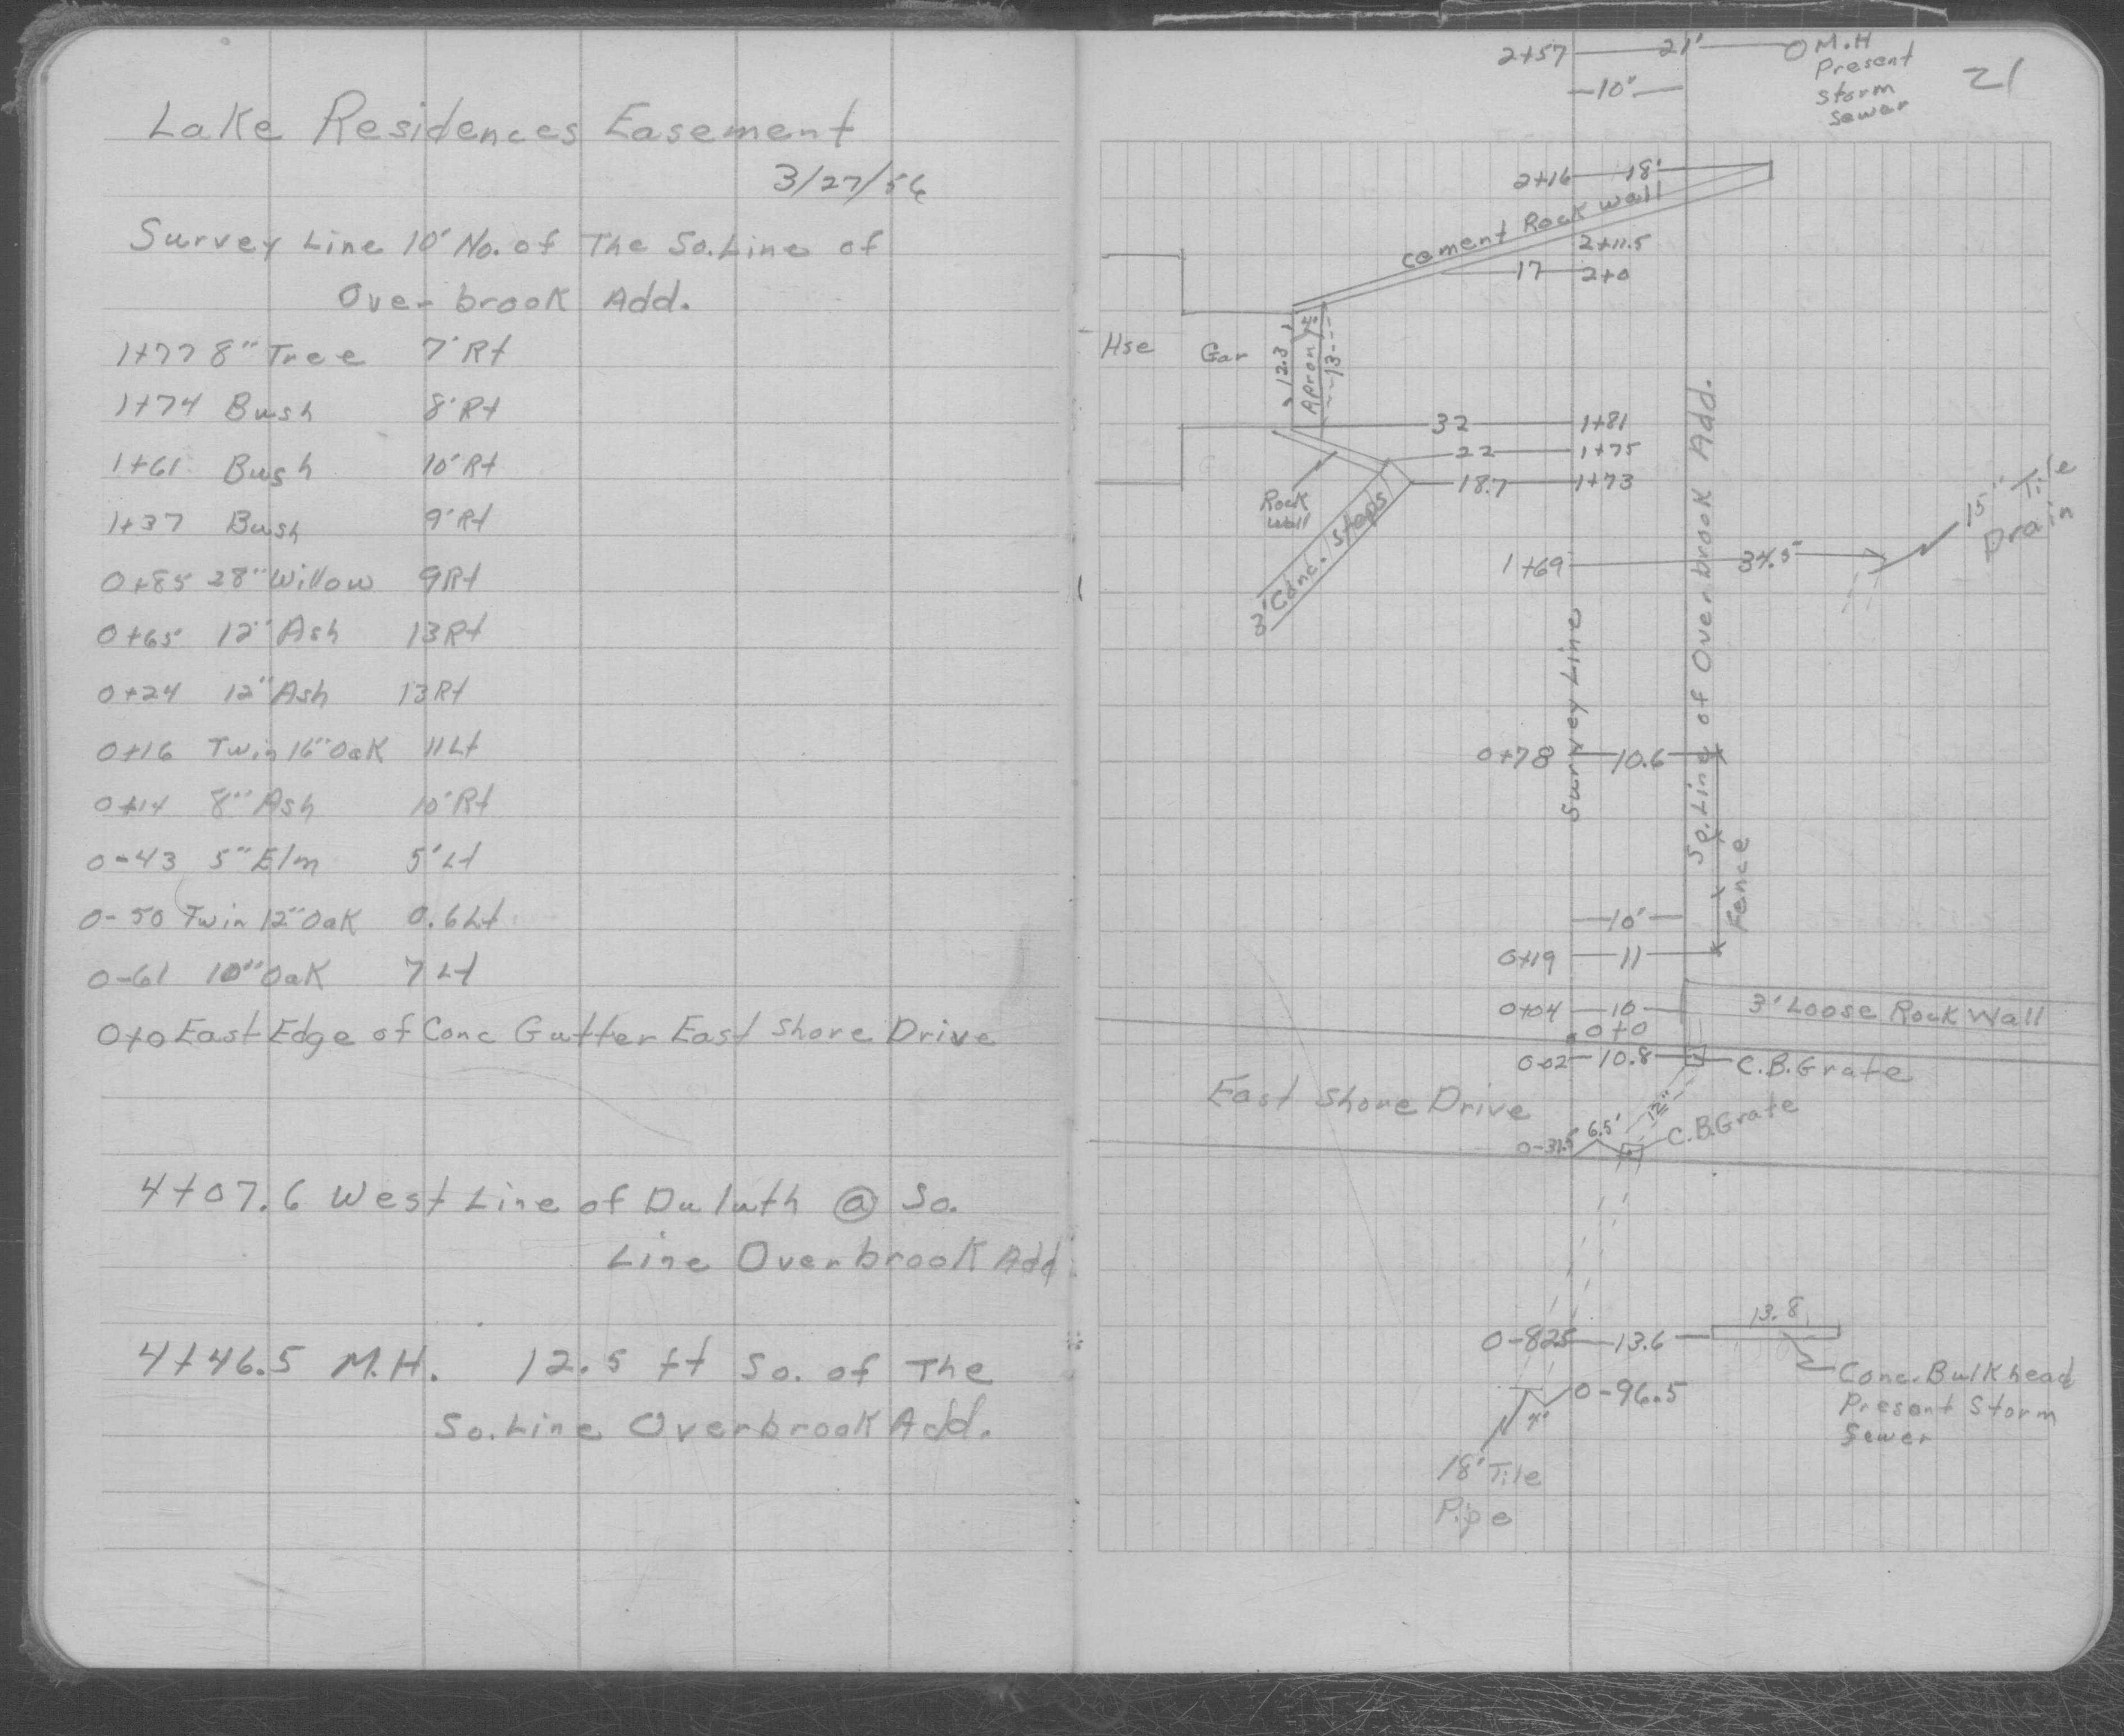 Lake Residences Easement
3/27/56
Survey Line 10' No. of The So. Line of
Overbrook Add.
1+77 8" Tree 7' Rt
1+74 Bush 8' Rt
1+61 Bush 10' Rt
1+37 Bush 9' Rt
0+85 28" Willow 9Rt
0+65 12" Ash 13Rt
0+24 12" Ash 13Rt
0+16 Twin 16" Oak 11Lt
0+14 8" Ash 10' Rt
0-43 5" Elm 5' Lt
0-50 Twin 12" Oak 0.6Lt
0-61 10" Oak 7 Lt
0+0 East Edge of Conc Gutter East Shore Drive
4+07.6 West Line of Duluth @ So.
Line Overbrook Add
4+46.5 M.H. 12.5 ft So. of The
So. Line Overbrook Add.
21
2+57 21' M.H
Present
Storm
Sewer
10"
2+16 18'
cement Rock wall
2+11.5
17 2+0
Hse Gar 12.3 Apron 13
32 1+81
22 1+75
18.7 1+73
Rock
wall
3' Conc. Steps
15" Tile
Drain
1+69 34.5
Survey Line
So. Line of Overbrook Add.
0+78 10.6
Fence
10'
0+19 11
0+04 10 3' Loose Rock Wall
0+0
0-02 10.8 C.B. Grate
East Shore Drive
12"
0-31.5 6.5' C.B. Grate
13.8
0-82.5 13.6
Conc. Bulkhead
Present Storm
Sewer
0-96.5
18" Tile
Pipe